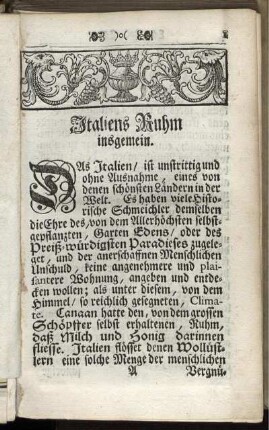 Italiens Ruhm
insgemein.
DAs Italien/ ist unstrittig und
ohne Ausnahme, eines von
denen schönsten Ländern in der
Welt. Es haben viele Histo-
rische Schmeichler demselben
die Ehre des, von dem Allerhöchsten selbst-
gepflantzten, Garten Edens/ oder des
Preiß-würdigsten Paradieses zugele-
get, und der anerschaffnen Menschlichen
Unschuld, keine angenehmere und plai-
santere Wohnung, angeben und entde-
cken wollen; als unter diesem, von dem
Himmel/ so reichlich gesegneten, Clima-
te. Canaan hatte den, von dem grossen
Schöpffer selbst erhaltenen, Ruhm,
daß Milch und Honig darinnen
fliesse. Italien flösset denen Wollüst-
lern eine solche Menge der menschlichen
A Vergnü-